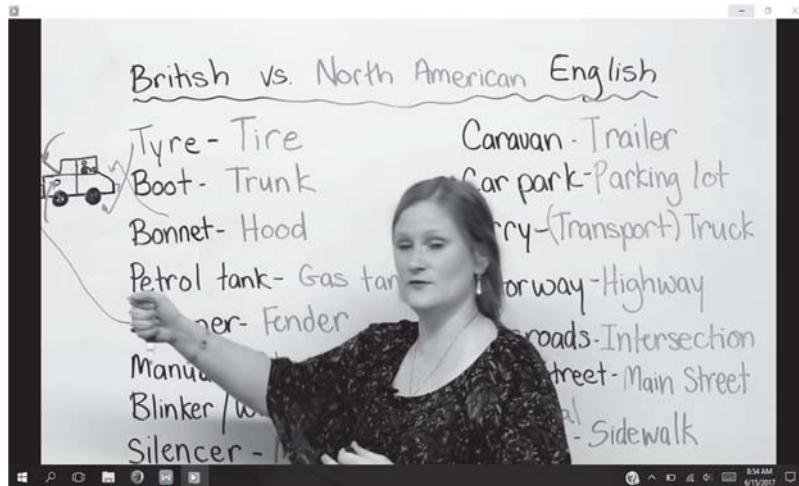 British vs. North American English
Tyre - Tire
Boot - Trunk
Bonnet - Hood
Petrol tank - Gas
Fender
Blinker /
Silencer -
Caravan - Trailer
Car park - Parking lot
(Transport) Truck
Highway
Intersection
Main Street
Sidewalk
8:54 AM
6/15/2017